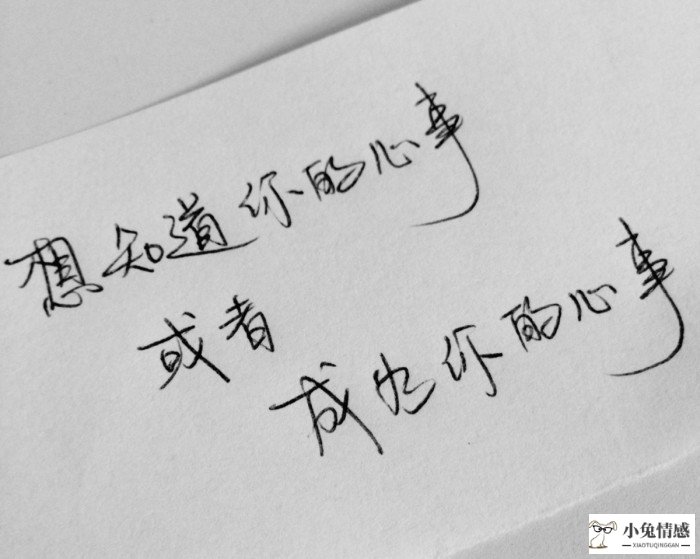 想知道你的心事
或者
成为你的心事
小兔情感
XIAOTUQINGGAN